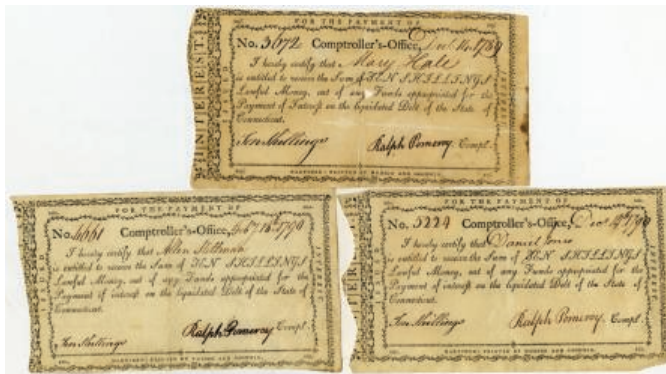 FOR THE PAYMENT OF
No. 3672 Comptroller's-Office, Dec. 14 1789
I hereby certify that Mary Hale
is entitled to receive the Sum of TEN SHILLINGS
Lawful Money, out of any Funds appropriated for the
Payment of Interest on the liquidated Debt of the State of
Connecticut.
Ten Shillings Ralph Pomeroy Compt.
HARTFORD: PRINTED BY HUDSON AND GOODWIN.
INTEREST.
FOR THE PAYMENT OF
No. 4661 Comptroller's-Office, 1790
I hereby certify that Allen
is entitled to receive the Sum of TEN SHILLINGS
Lawful Money, out of any Funds appropriated for the
Payment of interest on the liquidated Debt of the State of
Connecticut.
Ten Shillings Ralph Pomeroy Compt.
HARTFORD: PRINTED BY HUDSON AND GOODWIN.
INTEREST
FOR THE PAYMENT OF
No. 5224 Comptroller's-Office, Dec. 1790
I hereby certify that Daniel Jones
is entitled to receive the Sum of TEN SHILLINGS
Lawful Money, out of any Funds appropriated for the
Payment of interest on the liquidated Debt of the State of
Connecticut.
Ten Shillings Ralph Pomeroy. Compt.
HARTFORD: PRINTED BY HUDSON AND GOODWIN.
INTEREST